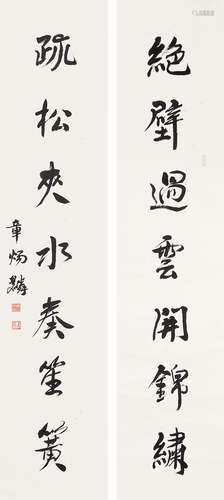 絕壁過雲開錦繡
疏松夾水奏笙簧
章炳麟